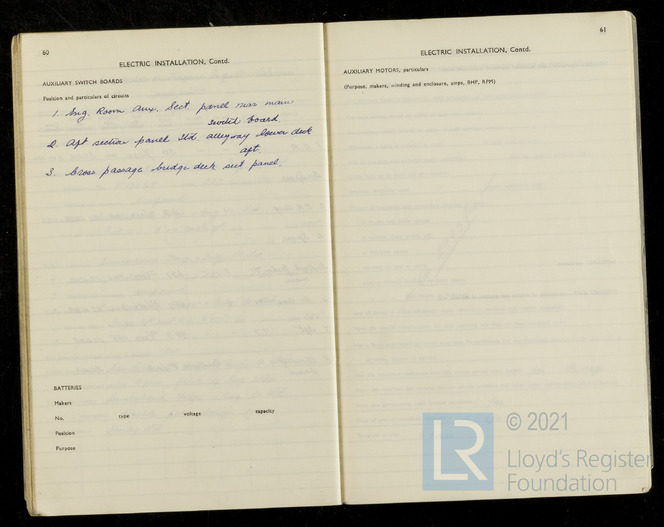 60
ELECTRIC INSTALLATION, Contd.
AUXILIARY SWITCH BOARDS
Position and particulars of circuits
1. Eng. Room Aux. Sect. panel near main
switch board.
2. Aft section panel Std. alleyway lower deck
aft.
3. Cross passage bridge deck sect panel.
BATTERIES
Makers
No. type voltage capacity
Position
Purpose
61
ELECTRIC INSTALLATION, Contd.
AUXILIARY MOTORS, particulars
(Purpose, makers, winding and enclosure, amps, BHP, RPM)
LR
© 2021
Lloyd's Register
Foundation